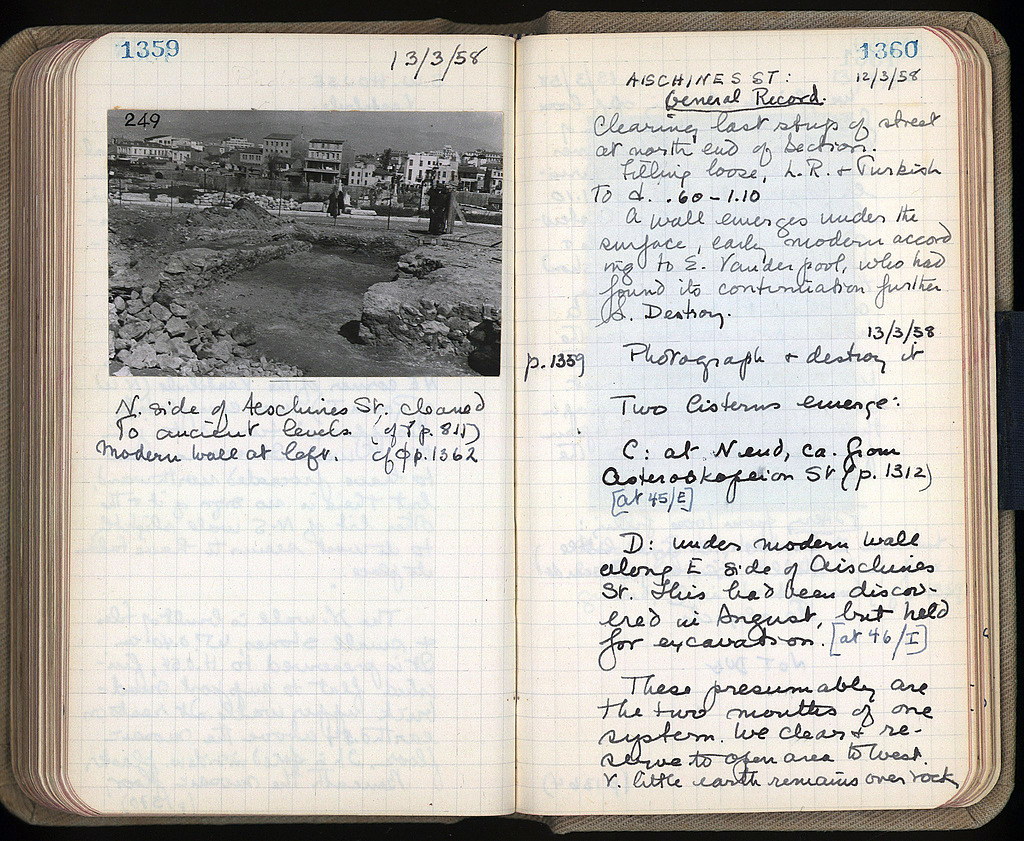 1359
13/3/58
249
N. side of Aeschines St. cleaned
to ancient levels. (cf p. 811)
Modern wall at left. cf p. 1362
1360
AISCHINES ST: 12/3/58
General Record.
Clearing last strip of street
at north end of Section.
Filling loose, L.R. + Turkish
To d. .60-1.10
A wall emerges under the
surface, early modern accord
ing to E. Vanderpool, who had
found its continuation further
S. Destroy.
13/3/58
p. 1359 Photograph + destroy it
Two Cisterns emerge:
C: at N end, ca. from
Asteroskopeion St (p. 1312)
[at 45/E]
D: under modern wall
along E side of Aischines
St. This had been discov-
ered in August, but held
for excavation. [at 46/I]
These presumably are
the two mouths of one
system. We clear + re-
serve to open area to West.
V. little earth remains over rock